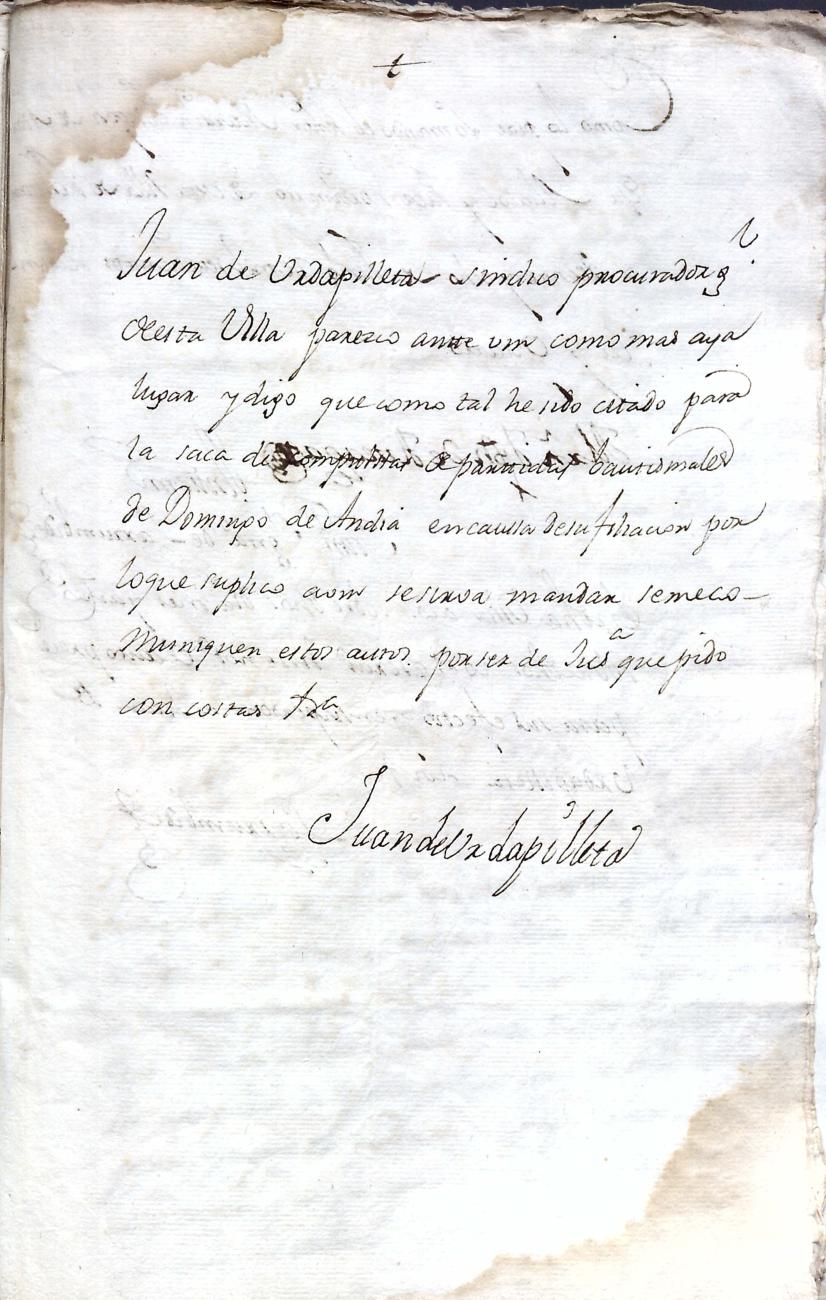 †
Juan de Urdapilleta sindico procurador g.l
desta Villa parezco ante vm como mas aya
lugar y digo que como tal he sido citado para
la saca de compulsas de partidas bautismales
de Domingo de Andia en caussa de su filiacion por
loque suplico avm se sirva mandar se me co-
muniquen estos autos por ser de Jusa que pido
con costas &ra
Juan de Urdapilleta